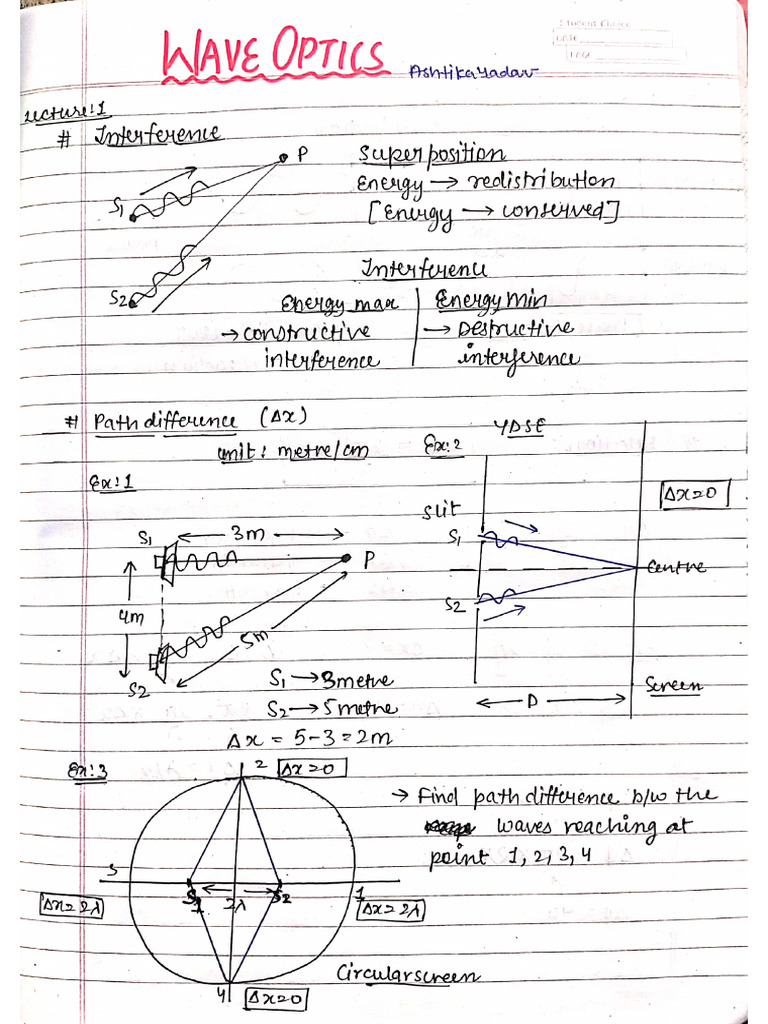 Student Choice
DATE
PAGE
WAVE OPTICS
Ashtika Yadav
Lecture:1
# Interference
P
S1
S2
Superposition
Energy → redistribution
[Energy → conserved]
Interference
Energy max
→ constructive
interference
Energy min
→ Destructive
interference
# Path difference (Δx)
unit: metre/cm
Ex:1
S1
3m
P
4m
5m
S2
S1 → 3metre
S2 → 5metre
Δx = 5-3=2m
Ex:2
YDSE
Δx=0
slit
S1
Centre
S2
Screen
D
Ex:3
2
Δx=0
3
S1
2λ
S2
1
Δx=2λ
Δx=2λ
4
Δx=0
Circular screen
→ Find path difference b/w the
waves reaching at
point 1, 2, 3, 4